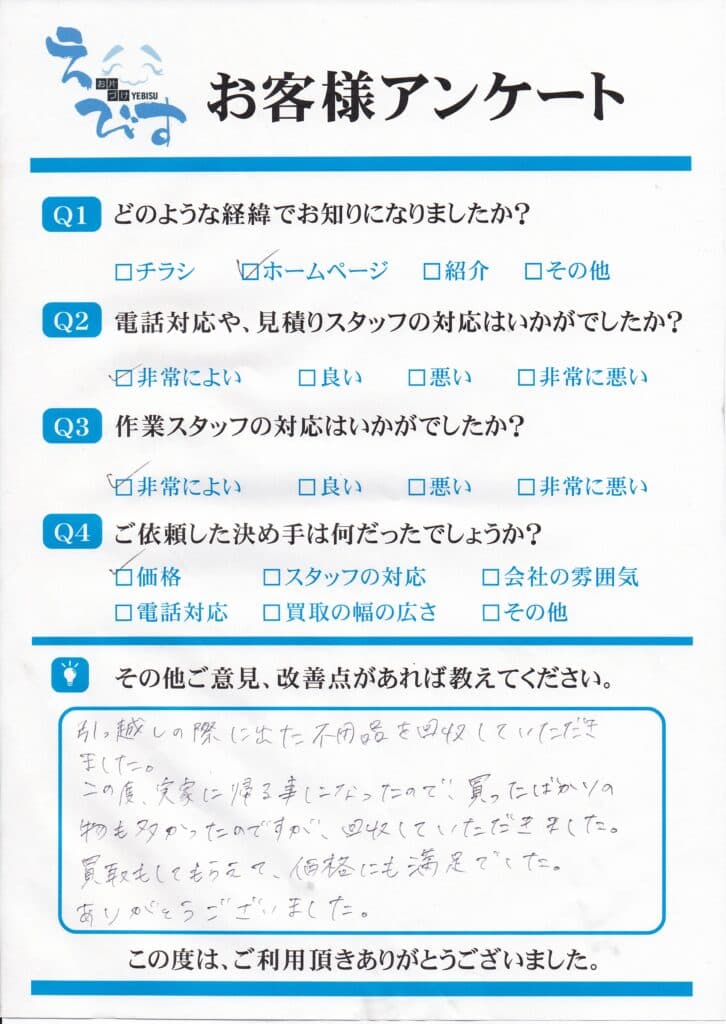 えびす
お片づけ YEBISU
お客様アンケート
Q1 どのような経緯でお知りになりましたか?
□チラシ ☑ホームページ □紹介 □その他
Q2 電話対応や、見積りスタッフの対応はいかがでしたか?
☑非常によい □良い □悪い □非常に悪い
Q3 作業スタッフの対応はいかがでしたか?
☑非常によい □良い □悪い □非常に悪い
Q4 ご依頼した決め手は何だったでしょうか?
☑価格 □スタッフの対応 □会社の雰囲気
□電話対応 □買取の幅の広さ □その他
その他ご意見、改善点があれば教えてください。
引っ越しの際に出た不用品を回収していただき
ました。
この度、実家に帰る事になったので、買ったばかりの
物も多かったのですが、回収していただきました。
買取もしてもらえて、価格にも満足でした。
ありがとうございました。
この度は、ご利用頂きありがとうございました。